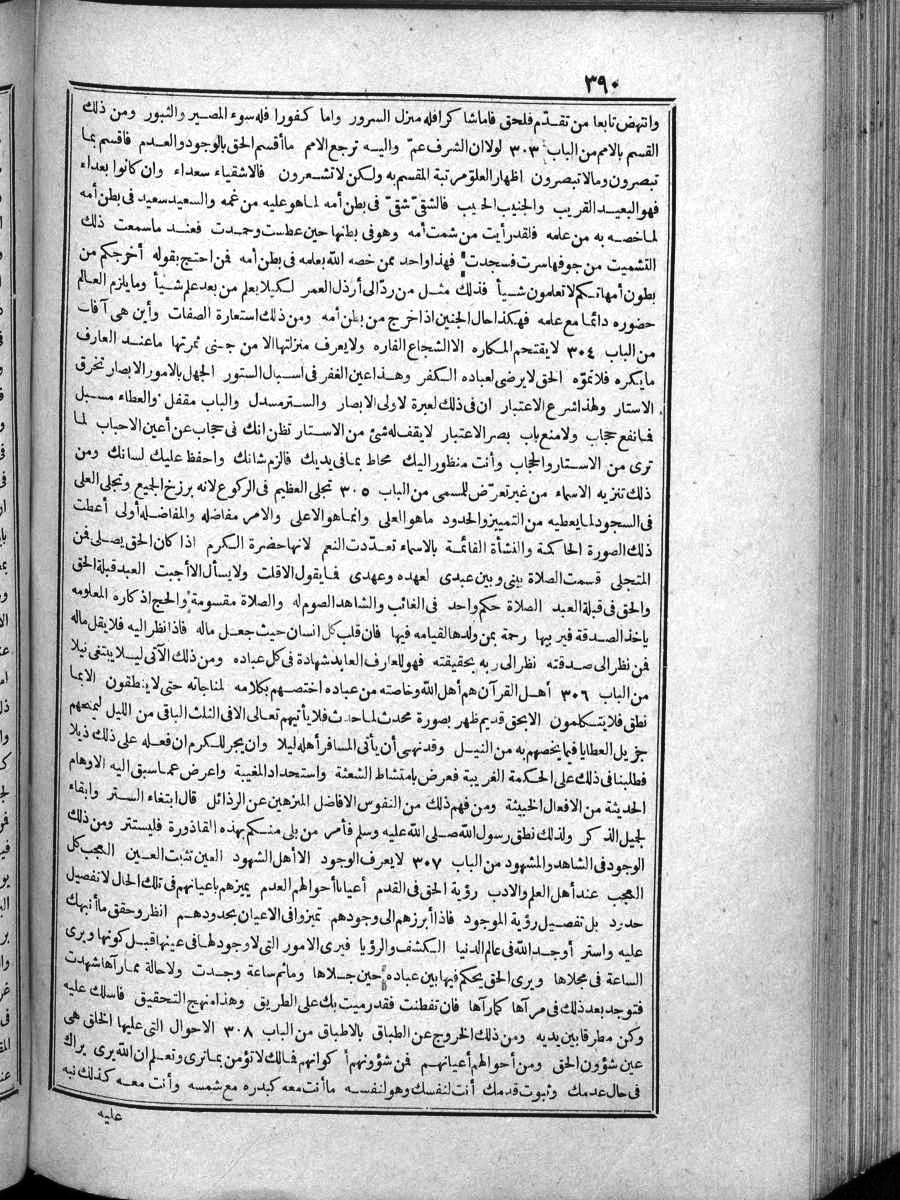 ٣٩٠
وانتهض تابعا من تقدّم فلحق فاما شا كرا فله منزل السرور واما كفورا فله سوء المصير والثبور ومن ذلك
القسم بالامم من الباب ٣٠٣ لولا ان الشرف عمّ واليه ترجع الامم ما أقسم الحق بالوجود والعدم فاقسم بما
تبصرون ومالا تبصرون اظهار العلو مرتبة المقسم به ولكن لا تشعرون فالاشقياء سعداء وان كانوا بعداء
فهو البعيد القريب والجنيب الحبيب فالشقىّ شقىّ فى بطن أمه لما هو عليه من غمه والسعيد سعيد فى بطن أمه
لما خصه به من علمه فلقد رأيت من شمت أمه وهو فى بطنها حين عطست وحمدت فعند ما سمعت ذلك
التشميت من جوفها سرت فسجدت فهذا واحد ممن خصه الله بعلمه فى بطن أمه فمن احتج بقوله أخرجكم من
بطون أمهاتكم لا تعلمون شيأ فذلك مثل من ردّ الى أرذل العمر لكيلا يعلم من بعد علم شيأ وما يلزم العالم
حضوره دائما مع علمه فهكذا حال الجنين اذا خرج من بطن أمه ومن ذلك استعارة الصفات وأين هى آفات
من الباب ٣٠٤ لا يقتحم المكاره الا الشجاع الفاره ولا يعرف منزلتها الا من جنى ثمرتها ما عند العارف
ما يكره فلا تموّه الحق لا يرضى لعباده الكفر وهذا عين الغفر فى اسبال الستور الجهل بالامور الابصار تخرق
الاستار ولهذا شرع الاعتبار ان فى ذلك لعبرة لاولى الابصار والستر مسدل والباب مقفل والعطاء مسبل
فما نفع حجاب ولا منع باب بصر الاعتبار لا يقف له شئ من الاستار تظن انك فى حجاب عن أعين الاحباب لما
ترى من الاستار والحجاب وأنت منظور اليك محاط بما فى يديك فالزم شانك واحفظ عليك لسانك ومن
ذلك تنزيه الاسماء من غير تعرّض للمسمى من الباب ٣٠٥ تجلى العظيم فى الركوع لانه برزخ الجميع وتجلى العلى
فى السجود لما يعطيه من التمييز والحدود ما هو العلى وانما هو الاعلى والامر مفاضله والمفاضله أولى أعطت
ذلك الصورة الحاكمة والنشأة القائمة بالاسماء تعددت النعم لانها حضرة الكرم اذا كان الحق يصلى فمن
المتجلى قسمت الصلاة بينى وبين عبدى لعهده وعهدى فما يقول الا قلت ولا يسأل الا أجبت العبد قبلة الحق
والحق فى قبلة العبد الصلاة حكم واحد فى الغائب والشاهد الصوم له والصلاة مقسومة والحج اذكاره المعلومه
ياخذ الصدقة فيربيها رحمة بمن ولدها القيامه فيها فان قلب كل انسان حيث جعل ماله فاذا نظر اليه فلا يقل ماله
فمن نظر الى صدقته نظر الى ربه بحقيقته فهو للعارف العابد شهادة فى كل عباده ومن ذلك الآتى ليلا يبتغى نيلا
من الباب ٣٠٦ أهل القرآن هم أهل الله وخاصته من عباده اختصهم بكلامه لمناجاته حتى لا ينطقون الا بما
نطق فلا يتكلمون الا بحق قديم ظهر بصورة محدث لما حدث فلا يأتيهم تعالى الا فى الثلث الباقى من الليل ليمنحهم
جزيل العطايا فيما يخصهم به من النيل وقد نهى أن يأتى المسافر أهله ليلا وان يجر للكرم ان فعله على ذلك ذيلا
فطلبنا فى ذلك على الحكمة الغريبة فعرض بامتشاط الشعثة واستحداد المغيبة واعرض عما سبق اليه الاوهام
الحديثة من الافعال الخبيثة ومن فهم ذلك من النفوس الافاضل المنزهين عن الرذائل قال ابتغاء الستر وابقاء
لجميل الذكر ولذلك نطق رسول الله صلى الله عليه وسلم فأمر من بلى منكم بهذه القاذورة فليستتر ومن ذلك
الوجود فى الشاهد والمشهود من الباب ٣٠٧ لا يعرف الوجود الا أهل الشهود العين تثبت العين العجب كل
العجب عند أهل العلم والادب رؤية الحق فى القدم أعيانا أحوالهم العدم يميزهم باعيانهم فى تلك الحال لا تفصيل
حدود بل تفصيل رؤية الموجود فاذا أبرزهم الى وجودهم تميزوا فى الاعيان بحدودهم انظر وحقق ما أنبهك
عليه واستر أوجد الله فى عالم الدنيا الكشف والرؤيا فيرى الامور التى لا وجود لها فى عينها قبل كونها ويرى
الساعة فى مجلاها ويرى الحق يحكم فيها بين عباده حين جلاها وما ثم ساعة وجدت ولا حالة مما رآها شهدت
فتوجد بعد ذلك فى مرآها كما رآها فان تفطنت فقد رميت بك على الطريق وهذا منهج التحقيق فاسلك عليه
وكن مطرقا بين يديه ومن ذلك الخروج عن الطباق بالاطباق من الباب ٣٠٨ الاحوال التى عليها الخلق هى
عين شؤون الحق ومن أحوالهم أعيانهم فمن شؤونهم أكوانهم فما لك لا تؤمن بما ترى وتعلم ان الله يرى يراك
فى حال عدمك وثبوت قدمك أنت لنفسك وهو لنفسه ما أنت معه كبدره مع شمسه وأنت معه كذلك نبه
عليه